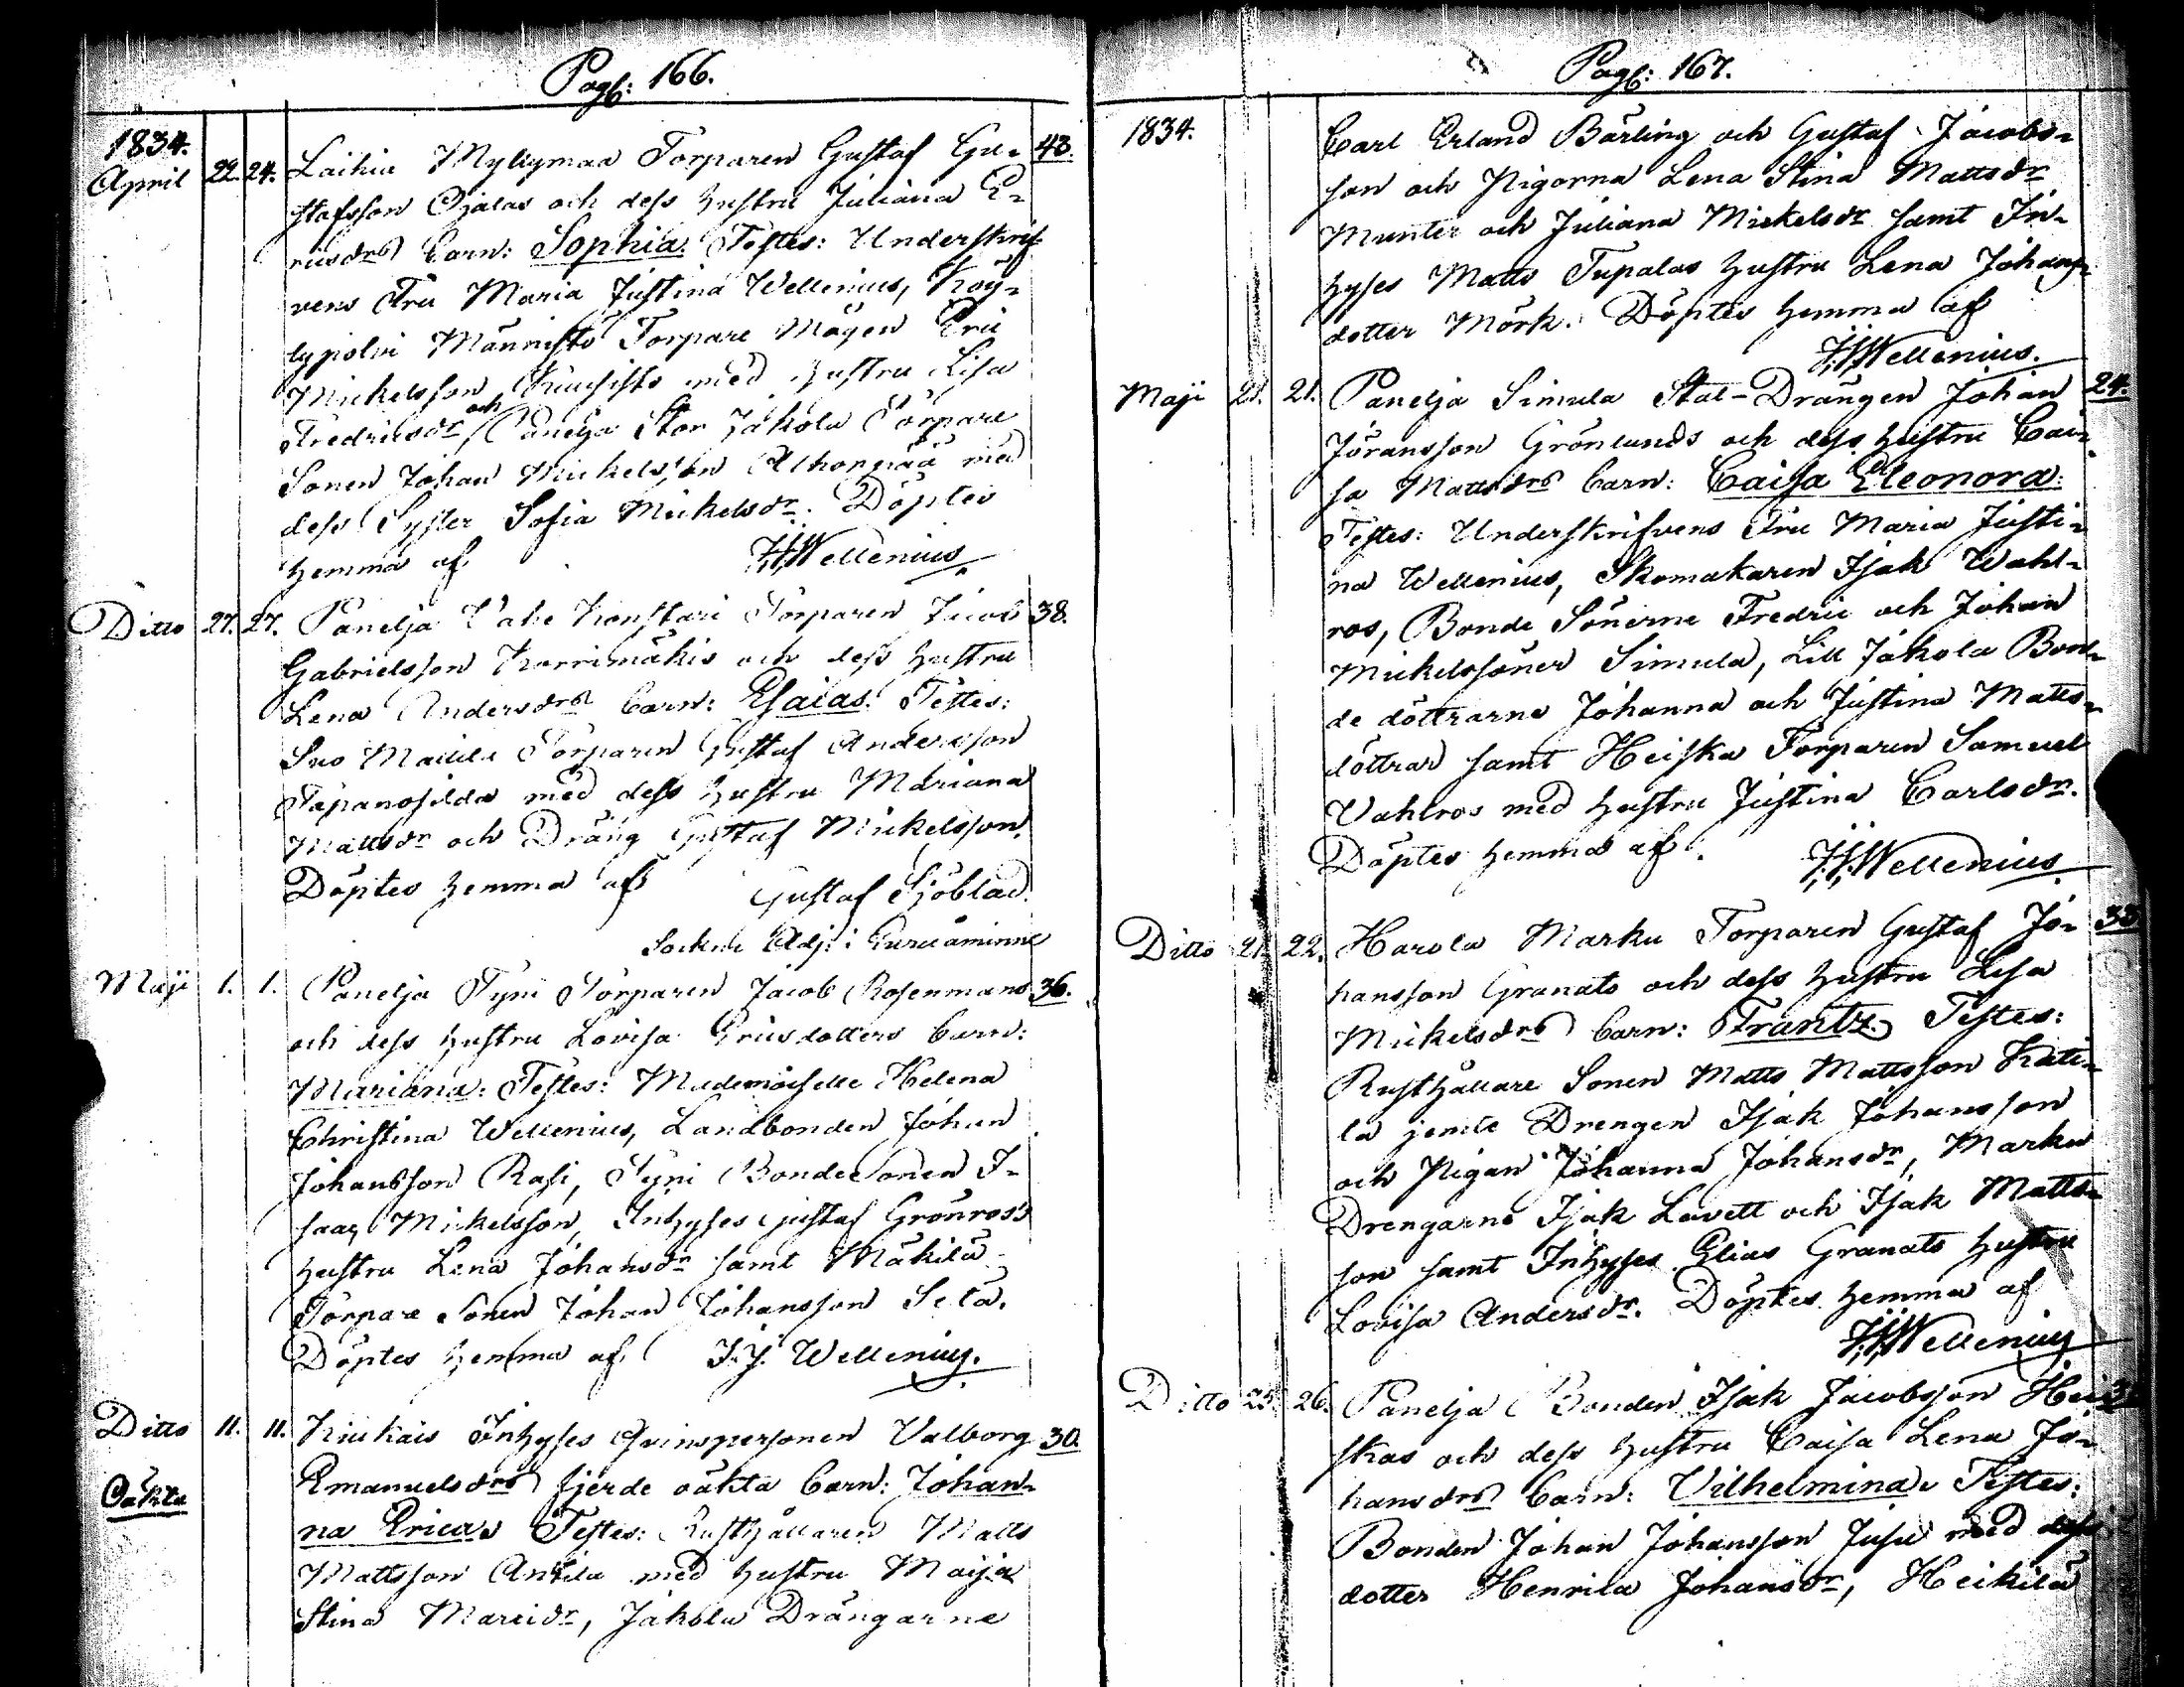 Pag: 166.
1834.
April 22. 24. Laihia Myllymaa Torparen Gustaf Gu- 43.
stafsson Ojalas och dess hustru Juliana E-
ricsdrs barn: Sophia. Testes: Underskrif-
vens Fru Maria Justina Wellenius, Köy-
lypolvi Männistö Torpare Mågen Eric
Mickelsson med hustru Lisa
Fredricsdr och Panelja Stor Jakola Torpare
Sonen Johan Mickelsson Alhonpää med
dess Syster Sofia Mickelsdr. Döptes
hemma af J.J. Wellenius
Ditto 27. 27. Panelja Vahe Konstari Torparen Jacob 38.
Gabrielsson Korrimäkis och dess hustru
Lena Andersdrs barn: Esaias. Testes:
Torparen Gustaf Andersson
med dess hustru Mariana
Mattsdr och Dräng Gustaf Mickelsson.
Döptes hemma af Gustaf Sjöblad.
Sockne Adj: i Euraåminne
Maji 1. 1. Panelja Tyni Torparen Jacob Rosenmans 36.
och dess hustru Lovisa Ericsdotters barn:
Mariana: Testes: Mademoiselle Helena
Christina Wellenius, Landbonden Johan
Johansson Rasi, Tyni Bondesonen I-
saac Mickelsson, Inhyses Gustaf Grönros's
hustru Lena Johansdr samt Mäkilä
Torpare Sonen Johan Johansson Seta.
Döptes hemma af J.J. Wellenius.
Ditto 11. 11. Kiukais Inhyses Qvinspersonen Valborg 30.
Emanuelsdrs fjerde oäkta barn: Johan-
Oäkta
na Erica. Testes: Rusthållaren Matts
Mattsson Anttila med hustru Maija
Stina Marcidr, Jakola Drängarne
Pag: 167.
1834.
Carl Erland Bärling och Gustaf Jacobs-
son och Pigorna Lena Stina Mattsdr
Munter och Juliana Mickelsdr samt In-
hyses Matts Tupalas hustru Lena Johans-
dotter Mörk. Döptes hemma af
J.J. Wellenius.
Maji 21. 21. Panelja Simula Stat-Drängen Johan 24.
Jöransson Grönlunds och dess hustru Cai-
sa Mattsdrs barn: Caisa Eleonora:
Testes: Underskrifvens Fru Maria Justi-
na Wellenius, Skomakaren Isak Wahl-
ros, Bonde Sönerne Fredric och Johan
Mickelssöner Simula, Lill Jakola Bon-
de döttrarne Johanna och Justina Matts-
döttrar samt Heiska Torparen Samuel
Vahlros med hustru Justina Carlsdr.
Döptes hemma af. J.J. Wellenius
Ditto 21. 22. Harola Marku Torparen Gustaf Jo- 33.
hansson Granats och dess hustru Lisa
Mickelsdrs barn: Frantz. Testes:
Rusthållare Sonen Matts Mattsson Kati-
la jemte Drengen Isak Johansson
och Pigan Johanna Johansdr, Marku
Drengarne Isak Lavett och Isak Matts-
son samt Inhyses Elias Granats hustru
Lovisa Andersdr. Döptes hemma af
J.J. Wellenius
Ditto 25. 26. Panelja Bonden Isak Jacobsson Hei-
skas och dess hustru Caisa Lena Jo-
hansdrs barn: Vilhelmina. Testes:
Bonden Johan Johansson Jusu med dess
dotter Henrica Johansdr, Heikilä